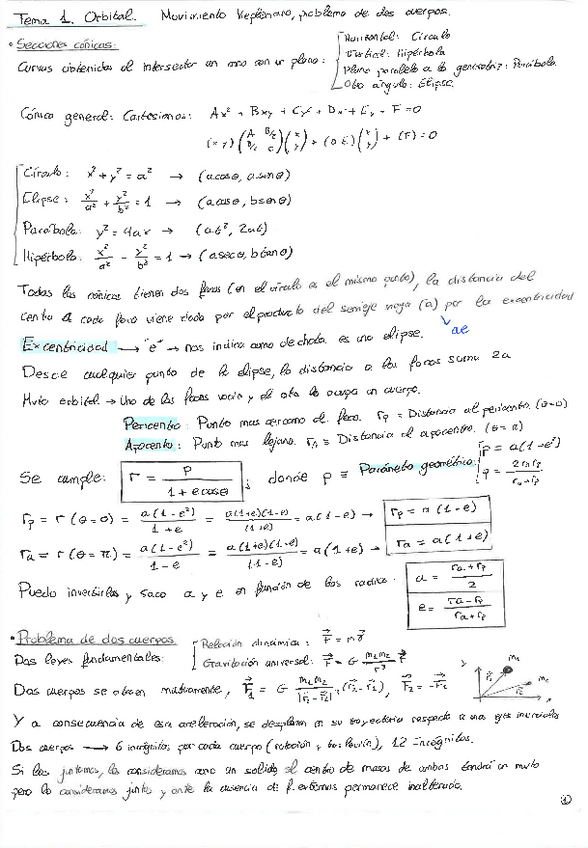 Tema 1. Orbital. Movimiento Kepleriano, problema de dos cuerpos.
• Secciones cónicas:
Curvas obtenidas al intersectar un cono con un plano:
Horizontal: Círculo
Vertical: Hipérbola
Plano paralelo a la generatriz: Parábola
Otro ángulo: Elipse.
Cónica general: Cartesianas: Ax² + Bxy + Cy² + Dx + Ey + F = 0
(x y) (A B/2 B/2 C) (x y) + (D E) (x y) + (F) = 0
Círculo: x² + y² = a² → (a cosθ, a senθ)
Elipse: x²/a² + y²/b² = 1 → (a cosθ, b senθ)
Parábola: y² = 4ax → (at², 2at)
Hipérbola: x²/a² - y²/b² = 1 → (a secθ, b tanθ)
Todas las cónicas tienen dos focos (en el círculo es el mismo punto), la distancia del
centro a cada foco viene dada por el producto del semieje mayor (a) por la excentricidad
ae
Excentricidad → "e" → nos indica como de chata es una elipse.
Desde cualquier punto de la elipse, la distancia a los focos suma 2a
Mvto orbital → Uno de los focos vacío y el otro lo ocupa un cuerpo.
Pericentro: Punto mas cercano al foco. rp = Distancia al pericentro. (θ=0)
Apocentro: Punto mas lejano. ra = Distancia al apocentro. (θ=π)
Se cumple: r = p / (1 + e cosθ) ; donde p ≡ Parámetro geométrico: p = a(1-e²)
p = 2 ra rp / (ra + rp)
rp = r(θ=0) = a(1-e²)/(1+e) = a(1+e)(1-e)/(1+e) = a(1-e) → rp = a(1-e)
ra = r(θ=π) = a(1-e²)/(1-e) = a(1+e)(1-e)/(1-e) = a(1+e) → ra = a(1+e)
Puedo invertirlas y saco a y e en función de los radios. a = (ra + rp)/2
e = (ra - rp)/(ra + rp)
• Problema de dos cuerpos
Dos leyes fundamentales:
Relación dinámica:
Gravitación universal:
Dos cuerpos se atraen mutuamente,
Y a consecuencia de esa aceleración, se desplazan en su trayectoria respecto a unos ejes inerciales
Dos cuerpos → 6 incógnitas por cada cuerpo (rotación y traslación), 12 incógnitas.
Si los juntamos, los consideramos como un sólido el centro de masas de ambos tendrá un mvto
pero lo consideramos juntos y ante la ausencia de f. externas permanece inalterado.
①